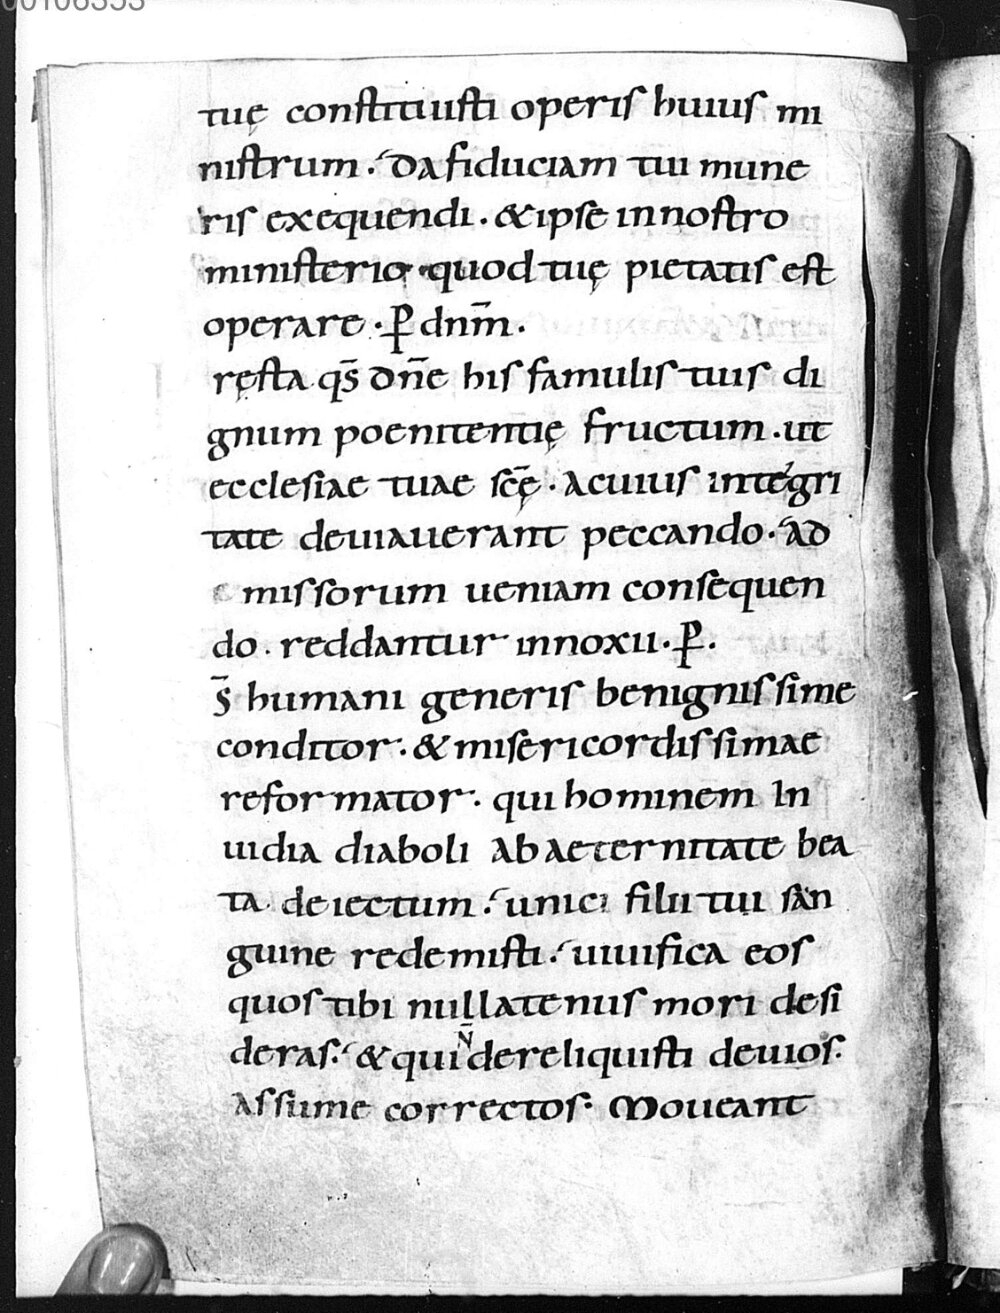 00106353
tuę constituisti operis huius mi
nistrum · da fiduciam tui mune
ris exequendi · & ipse in nostro
ministerio · quod tuę pietatis est
operare · P̄ dnm̄ ·
ręsta qs̄ dnē his famulis tuis di
gnum poenitentię fructum · ut
ecclesiae tuae scę̄ · a cuius integri
tate deuiauerant peccando · ad
missorum ueniam consequen
do · reddantur innoxii · P̄ ·
s̄ humani generis benignissime
conditor · & misericordissimae
reformator · qui hominem in
uidia diaboli ab aeternitate bea
ta deiectum · unici filii tui san
guine redemisti · uiuifica eos
quos tibi nullatenus mori desi
deras · & qui n̄ dereliquisti deuios ·
assume correctos · Moueant